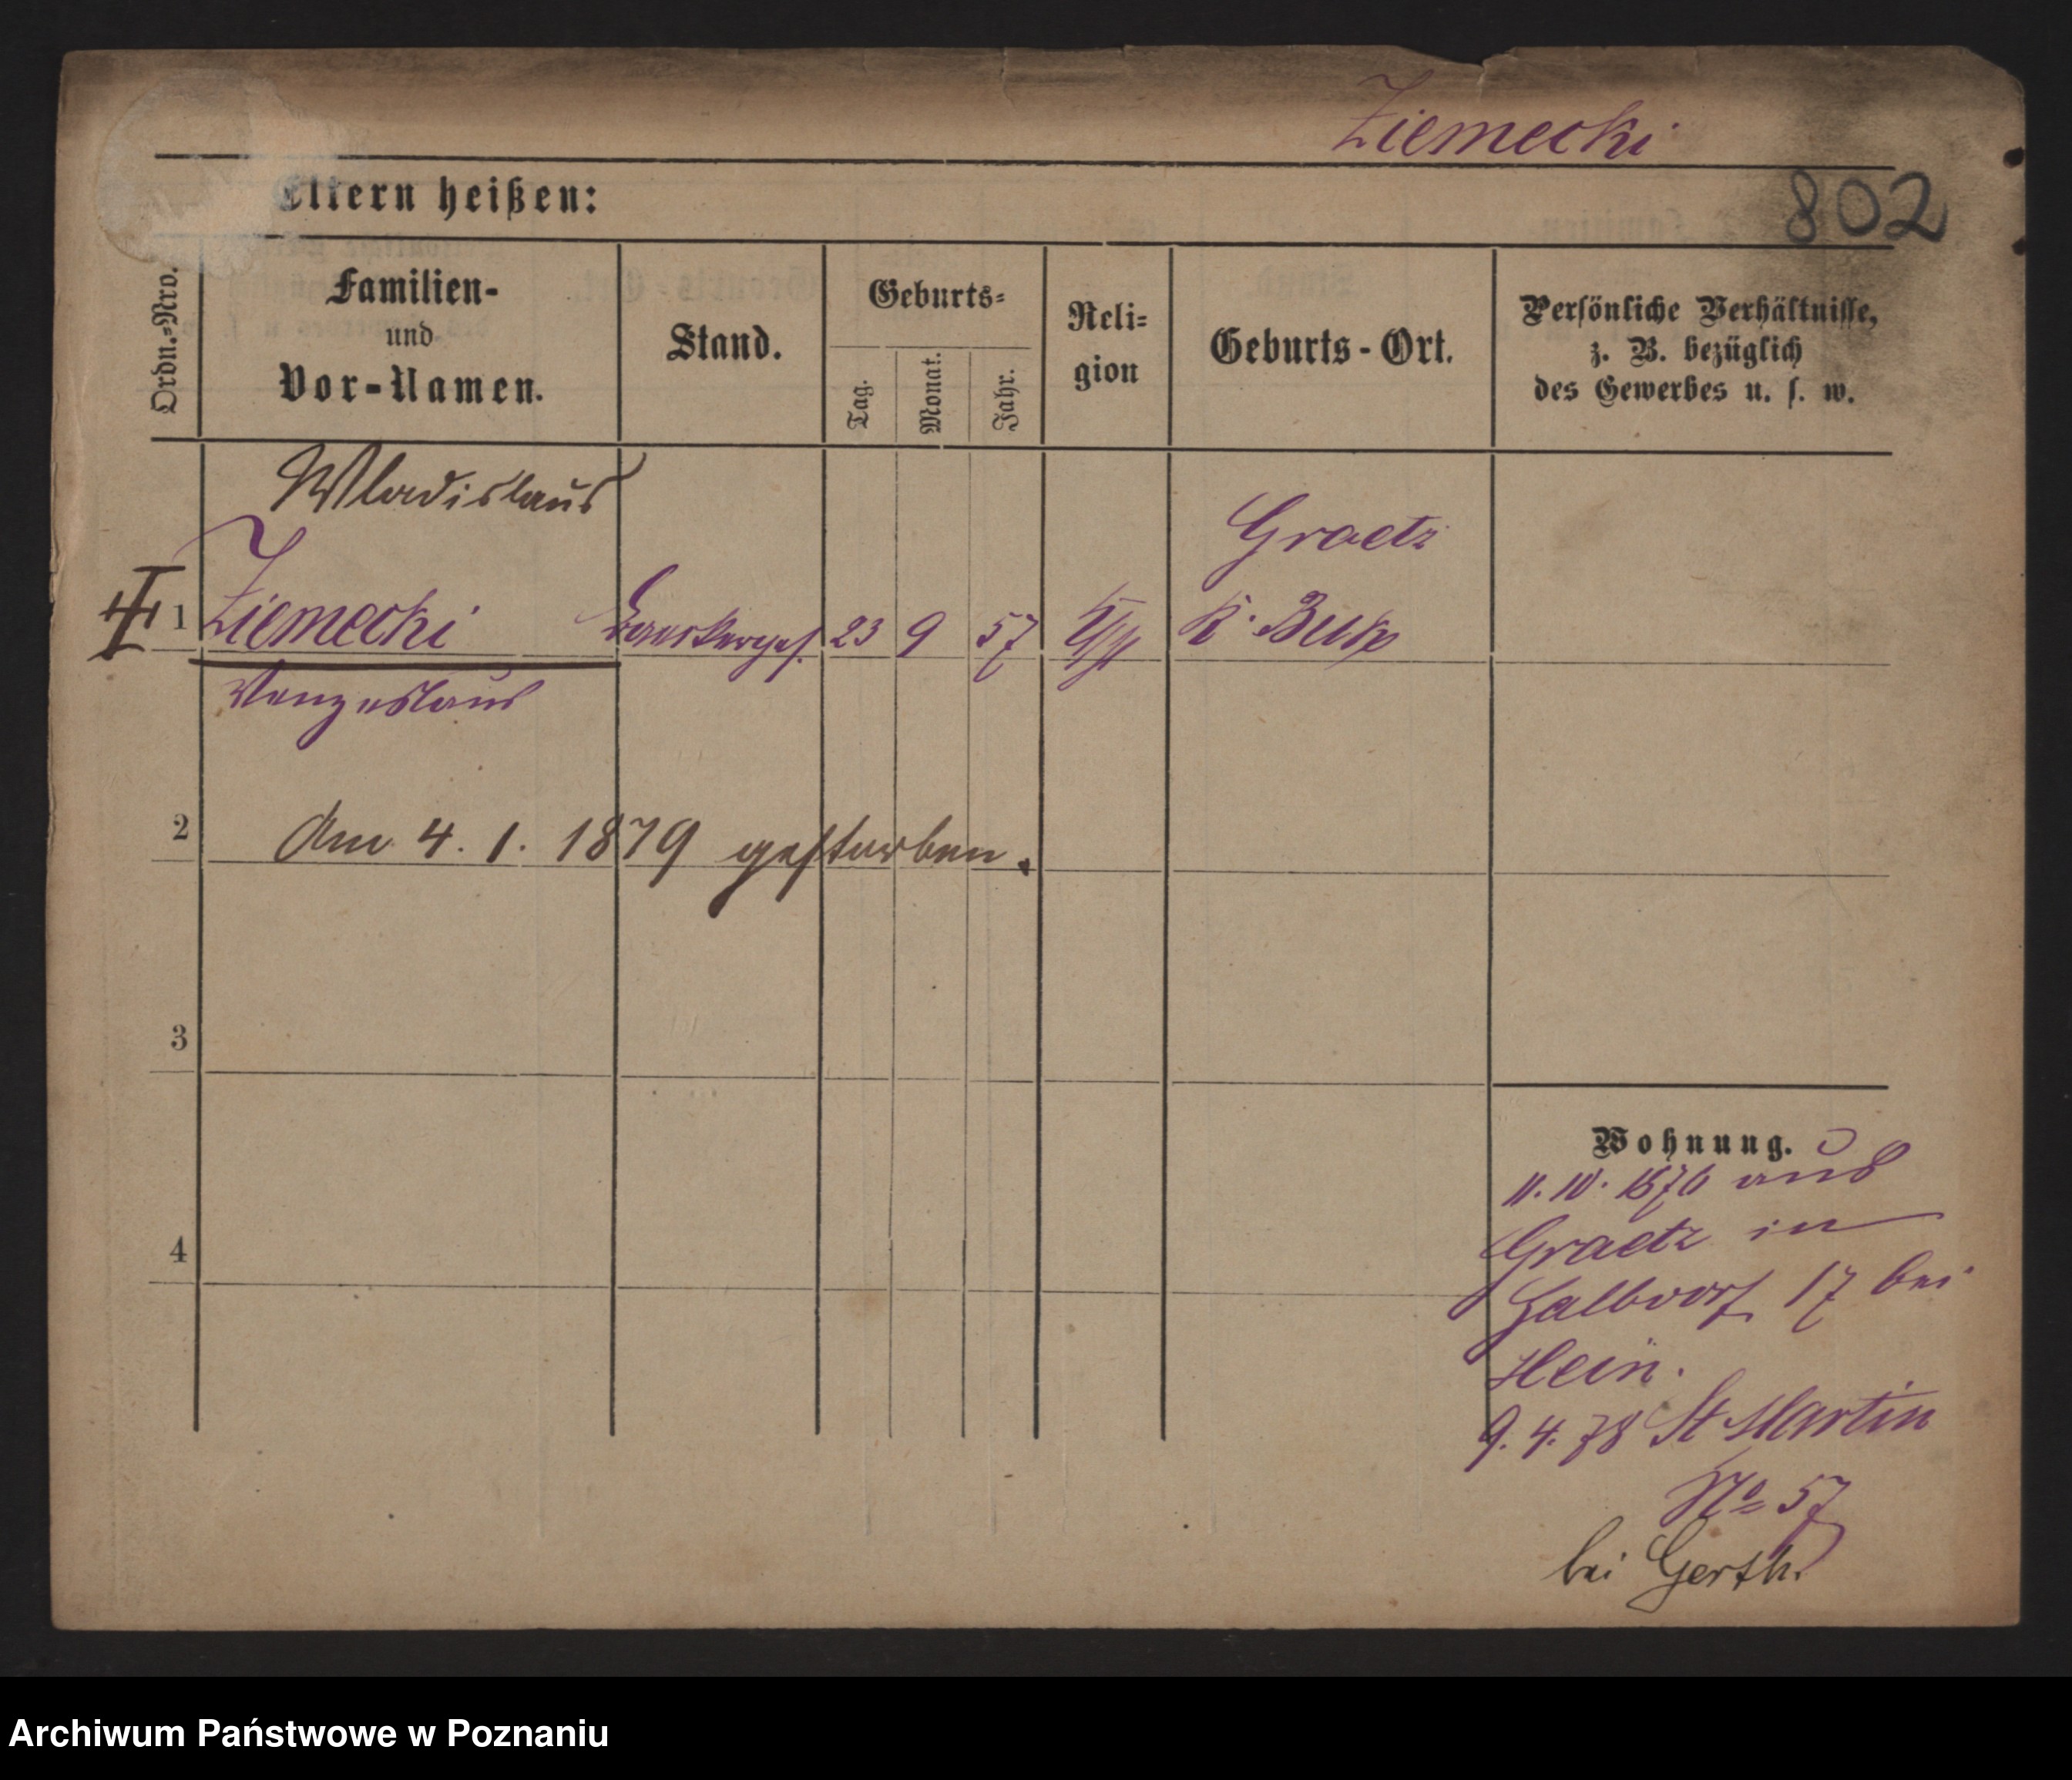 Ziemecki
802
Eltern heißen:
Ordn.-Nro.
Familien-
und
Vor-Namen.
Stand.
Geburts-
Tag.
Monat.
Jahr.
Reli-
gion
Geburts-Ort.
Persönliche Verhältnisse,
z. B. bezüglich
des Gewerbes u. s. w.
Wladislaus
Graetz
1 Ziemecki 23 9 57 K. Buk
Venzeslaus
2 Am 4. 1. 1879 gestorben.
3
4
Wohnung.
11. 10. 1876 aus
Graetz in
Halbdorf 17 bei
Hein.
9. 4. 78 St Martin
No 57
bei Gerth.
Archiwum Państwowe w Poznaniu